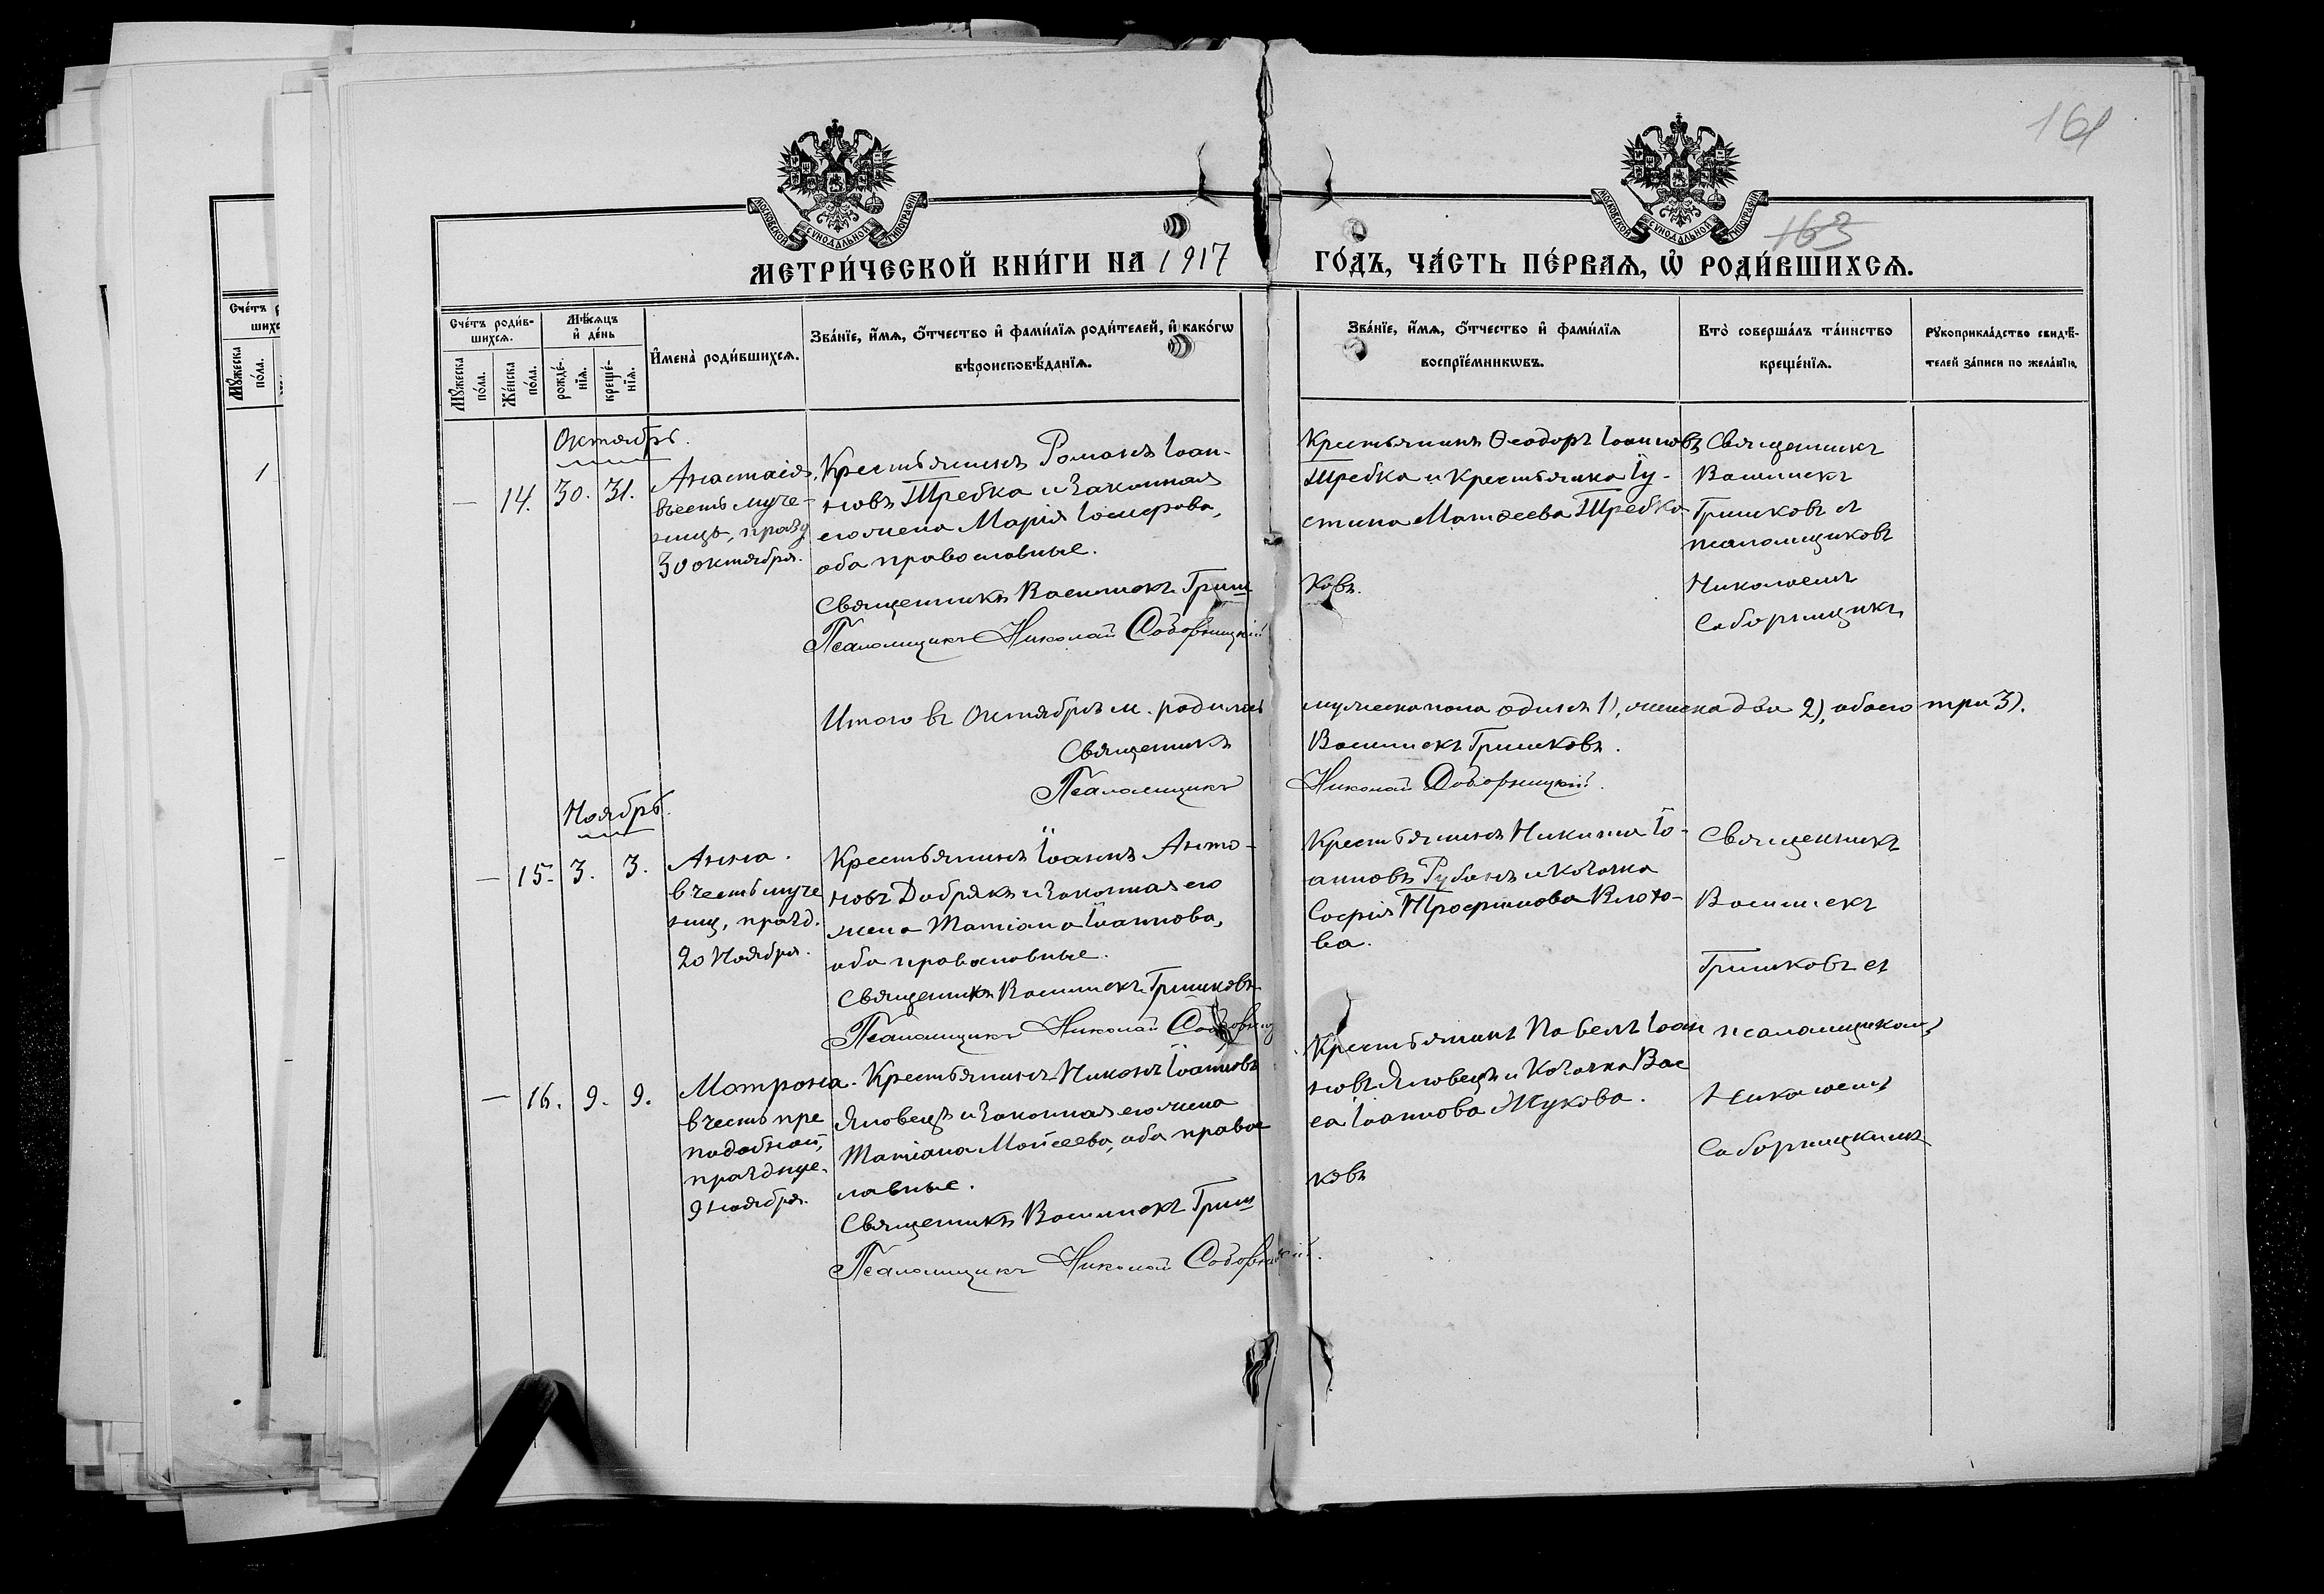 161
163
МОСКОВСКОЙ СУНОДАЛЬНОЙ ТИПОГРАФІИ
МОСКОВСКОЙ СУНОДАЛЬНОЙ ТИПОГРАФІИ
МЕТРИ́ЧЕСКОЙ КНИ́ГИ НА 1917 ГО́ДЪ, ЧА́СТЬ ПЕ́РВАѦ, Ѡ҆ РОДИ́ВШИХСѦ.
Сче́тъ роди́в-
шихсѧ.
Мѹ́жеска по́ла.
Же́нска по́ла.
Мѣ́сѧцъ и҆ де́нь
рожде́-
нїѧ.
креще́-
нїѧ.
И҆мена̀ роди́вшихсѧ.
Зва́нїе, и҆́мѧ, ѻ҆́тчество и҆ фами́лїѧ роди́телей, и҆ како́гѡ
вѣроисповѣ́данїѧ.
Зва́нїе, и҆́мѧ, ѻ҆́тчество и҆ фами́лїѧ
воспрїе́мникѡвъ.
Кто̀ соверша́лъ та́инство
креще́нїѧ.
Рѹкоприкла́дство свидѣ́-
телей за́писи по жела́нїю.
Октябрь.
— 14. 30. 31.
Анастасія,
въ честь муче-
ницы, празд
30 октября.
Крестьянинъ Романъ Іоан-
новъ Шребка и законная
его жена Марія Іосифова,
оба православные.
Священникъ Василискъ Гриш
ковъ.
Псаломщикъ Николай Соборницкій
Крестьянинъ Ѳеодоръ Іоанновъ
Шребка и крестьянка Іу-
стина Матѳеева Шребка
Священникъ
Василискъ
Гришковъ съ
псаломщиковъ
Николаемъ
Соборницкимъ
Итого въ Октябрѣ м. родилось мужеска пола одинъ 1), женска два 2), обоего три 3).
Священникъ Василискъ Гришковъ.
Псаломщикъ Николай Соборницкій.
Ноябрь.
— 15. 3. 3.
Анна.
въ честь муче
ниц, празд.
20 Ноября.
Крестьянинъ Іоаннъ Анто-
новъ Добрякъ и законная его
жена Татіана Іоаннова,
оба православные.
Священникъ Василискъ Гришковъ
Псаломщикъ Николай Соборниц
Крестьянинъ Никита Іо-
анновъ Рубанъ и козачка
Софія Трофимова
ва.
Священникъ
Василискъ
Гришковъ съ
псаломщикомъ
Николаемъ
Соборницкимъ
— 16. 9. 9.
Матрона.
въ честь пре
подобной,
празднуе.
9 ноября.
Крестьянинъ Никонъ Іоанновъ
Яловецъ и законная его жена
Татіана Моисеева, оба право
славные.
Священникъ Василискъ Гриш
ковъ
Псаломщикъ Николай Соборницкій.
Крестьянинъ Павелъ Іоан
новъ Яловецъ и козачка Вас
са Іоаннова Жукова.
Сче́тъ
шихс
Мѹ́жеска по́ла.
1